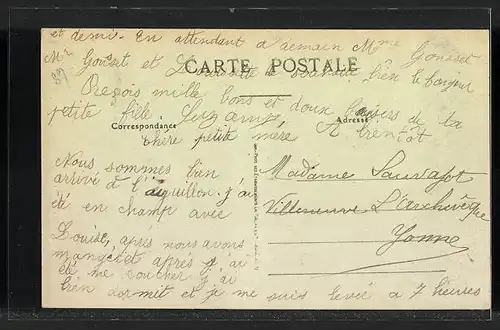 et demi. En attendant a demain Mme Gousset
Mr Gousset et souhaite bien le bonjour
CARTE POSTALE
Reçois mille bons et doux baisers de ta
petite fille Suzanne
Correspondance
Adresse
chère petite mère A bientôt
Nous sommes bien
arrivé à l'aiguillon. j'ai
été en champ avec
Louise, après nous avons
mangé et après j'ai
été me coucher j'ai
bien dormit et je me suis levée a 7 heures
Madame Sauvajot
Villeneuve L'archevêque
Yonne